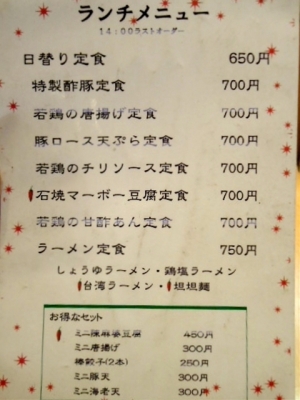 ランチメニュー
14:00ラストオーダー
日替り定食 650円
特製酢豚定食 700円
若鶏の唐揚げ定食 700円
豚ロース天ぷら定食 700円
若鶏のチリソース定食 700円
石焼マーボー豆腐定食 700円
若鶏の甘酢あん定食 700円
ラーメン定食 750円
しょうゆラーメン・鶏塩ラーメン
台湾ラーメン・坦坦麺
お得なセット
ミニ陳麻婆豆腐 450円
ミニ唐揚げ 300円
棒餃子(2本) 250円
ミニ豚天 300円
ミニ海老天 300円